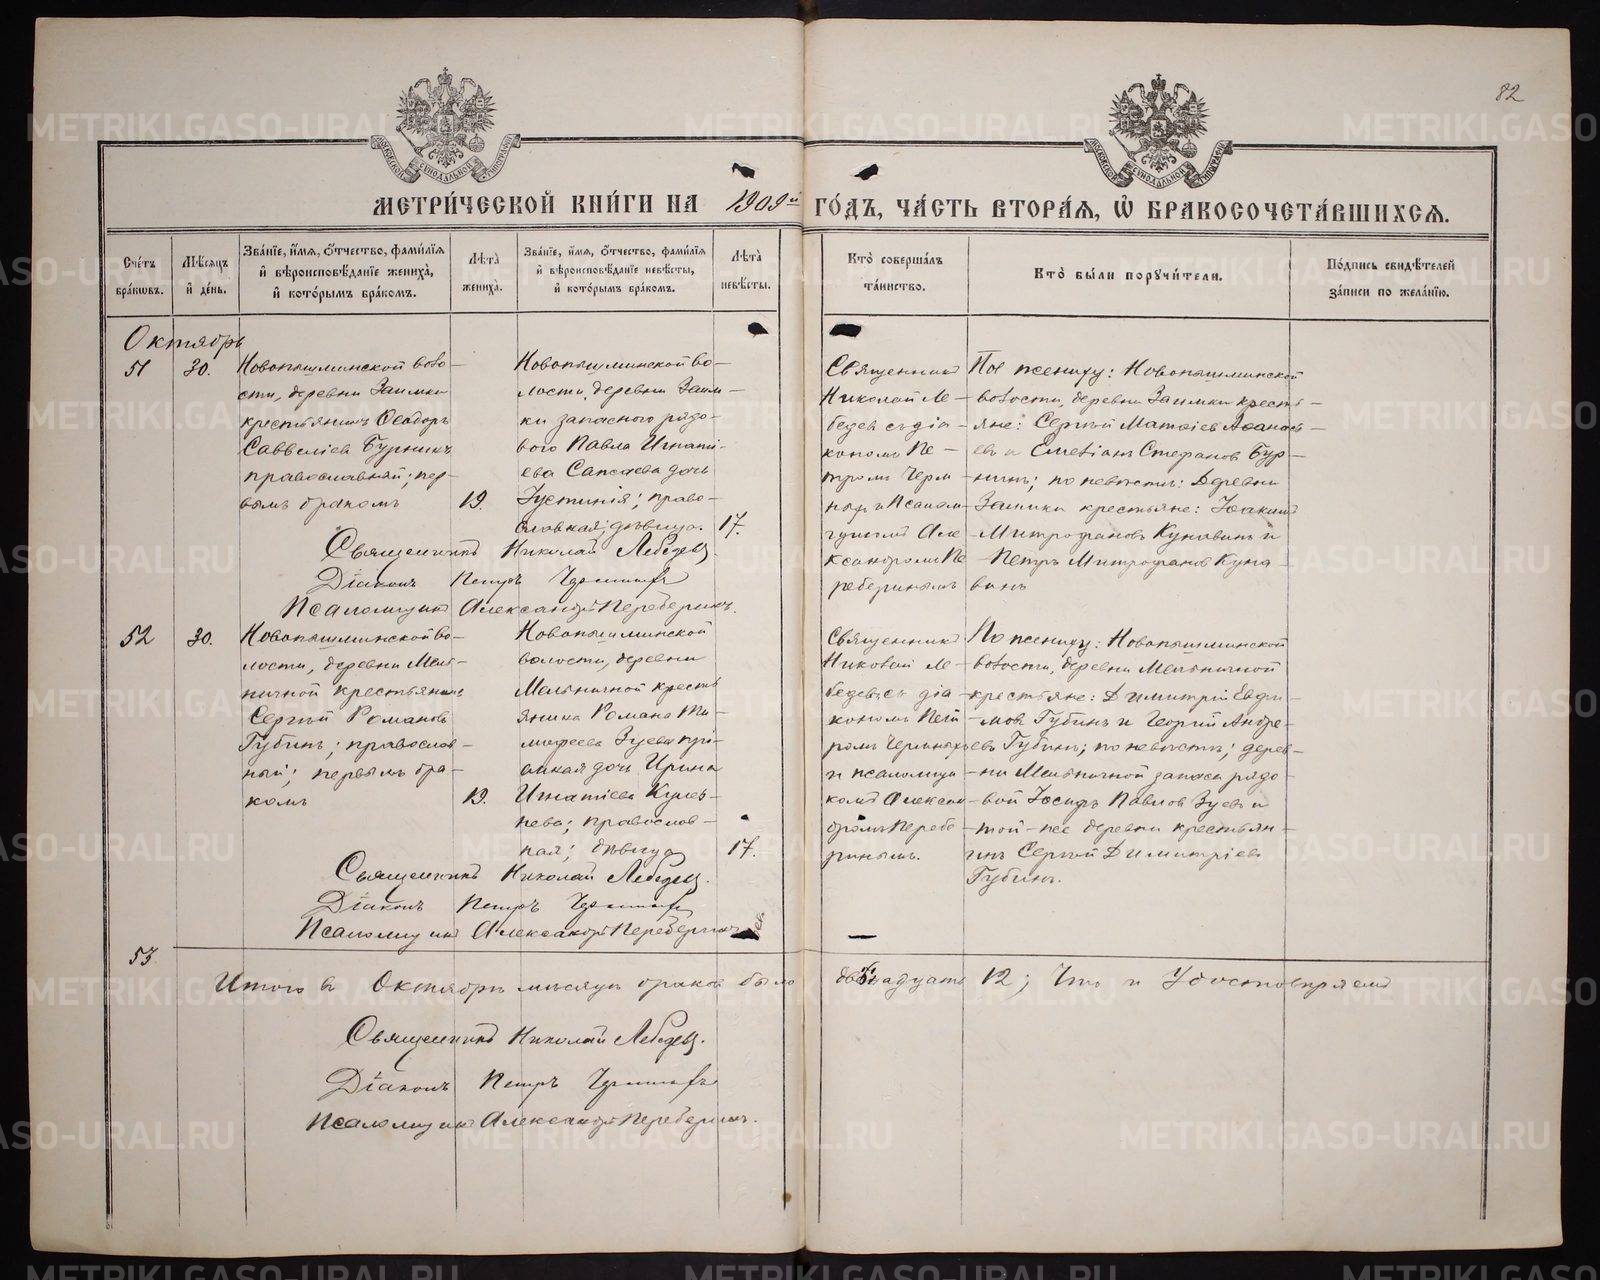 82
МЕТРИ́ЧЕСКОЙ КНИ́ГИ НА 1909й ГО́ДЪ, ЧА́СТЬ ВТОРА́Я, Ѡ БРАКОСОЧЕТА́ВШИХСЯ.
Сче́тъ бра́кωвъ.
Мѣ́сяцъ и҆ де́нь.
Зва́нїе, и҆́мя, ѻ҆́тчество, фами́лїя и҆ вѣроисповѣ́данїе жениха̀, и҆ кото́рымъ бра́комъ.
Лѣта̀ жениха̀.
Зва́нїе, и҆́мя, ѻ҆́тчество, фами́лїя и҆ вѣроисповѣ́данїе невѣ́сты, и҆ кото́рымъ бра́комъ.
Лѣта̀ невѣ́сты.
Кто̀ соверша́лъ та́инство.
Кто̀ бы́ли поручи́тели.
По́дпись свидѣ́телей за́писи по жела́нїю.
Октябрь
51
30.
Новопышминской воло-
сти, деревни Заимки
крестьянинъ Ѳеодоръ
Савველіев Бурнинъ
православный; пер-
вымъ бракомъ
19.
Новопышминской во-
лости, деревни Заим-
ки запаснаго рядо-
вого Павла Игнаті-
ева Сапсаева дочь
Іустинія; право-
славная; дѣвица.
17.
Священникъ
Николай Ле-
бедевъ съ діа-
кономъ Пе-
тромъ Черм
ныхъ Псалом
щикомъ Але
ксандромъ Пе
ребериннымъ
По женихѣ: Новопышминской
волости, деревни Заимки кресть-
яне: Сергѣй Матѳіев Аѳанась-
евъ и Емеліанъ Стефановъ Бур-
нинъ; по невѣстѣ: деревни
Заимки крестьяне: Іоакимъ
Митрофановъ Кунавинъ и
Петръ Митрофановъ Куна-
винъ
Священникъ Николай Лебедевъ.
Діаконъ Петръ
Псаломщикъ Александръ Переберинъ.
52
30.
Новопышминской во-
лости, деревни Мель-
ничной крестьянинъ
Сергѣй Романовъ
Губинъ; православ-
ный; первымъ бра-
комъ
19.
Новопышминской
волости, деревни
Мельничной кресть
янина Романа Ти-
мофеева Зуева прі-
емная дочь Ирина
Игнатіева
православ-
ная; дѣвица
17.
Священникъ
Николай Ле-
бедевъ съ діа
кономъ Пет
ромъ Чермныхъ
и псаломщи
комъ Алексан
дромъ Перебе
ринымъ.
По женихѣ: Новопышминской
волости, деревни Мельничной
крестьяне: Димитрій Евфи-
мовъ Губинъ и Георгій Андре-
евъ Губинъ; по невѣстѣ; дерев-
ни Мельничной запасн рядо-
вой Іосифъ Павловъ Зуевъ и
той-же деревни крестьян-
инъ Сергѣй Димитріевъ
Губинъ.
Священникъ Николай Лебедевъ.
Діаконъ Петръ
Псаломщикъ Александръ Переберинъ
53
Итого въ Октябрѣ мѣсяцѣ браковъ было двѣнадцать 12; Что и Удостовѣряемъ
Священникъ Николай Лебедевъ.
Діаконъ Петръ
Псаломщикъ Александръ Переберинъ.
METRIKI.GASO-URAL.RU